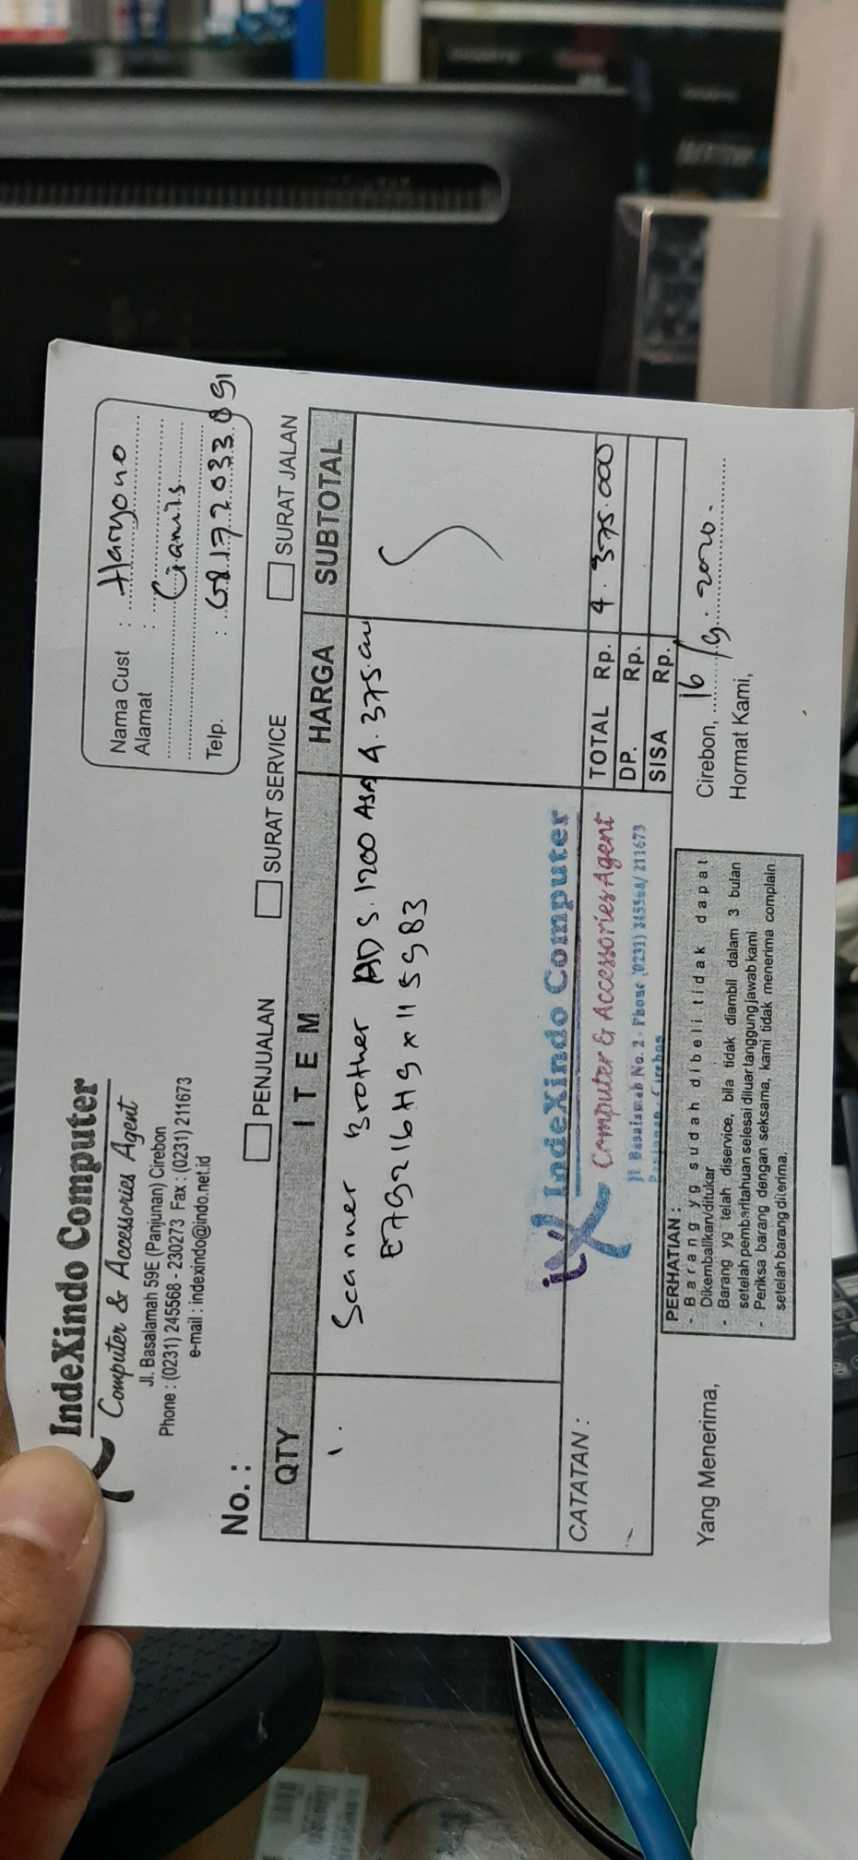 IndeXindo Computer
Computer & Accessories Agent
Jl. Basalamah 59E (Panjunan) Cirebon
Phone : (0231) 245568 - 230273 Fax : (0231) 211673
e-mail : indexindo@indo.net.id
Nama Cust : Haryono
Alamat : Ciamis
Telp. :
No. :
PENJUALAN SURAT SERVICE SURAT JALAN
QTY ITEM HARGA SUBTOTAL
1. Scanner Brother ADS. 1200 4.375.000
CATATAN :
IndeXindo Computer
Computer & Accessories Agent
Jl. Basalamah No. 2 - Phone (0231) 211673
Panjunan - Cirebon
TOTAL Rp. 4.375.000
DP. Rp.
SISA Rp.
PERHATIAN :
- Barang yg sudah dibeli tidak dapat
Dikembalikan/ditukar
- Barang yg telah diservice, bila tidak diambil dalam 3 bulan
setelah pemberitahuan selesai diluar tanggung jawab kami
- Periksa barang dengan seksama, kami tidak menerima complain
setelah barang diterima.
Cirebon, 16/9.2020.
Hormat Kami,
Yang Menerima,